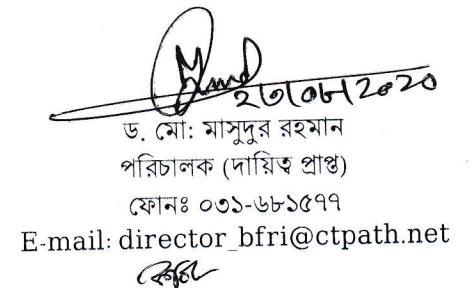 ২৩/০৮/২০২০
ড. মো: মাসুদুর রহমান
পরিচালক (দায়িত্ব প্রাপ্ত)
ফোনঃ ০৩১-৬৮১৫৭৭
E-mail: director_bfri@ctpath.net